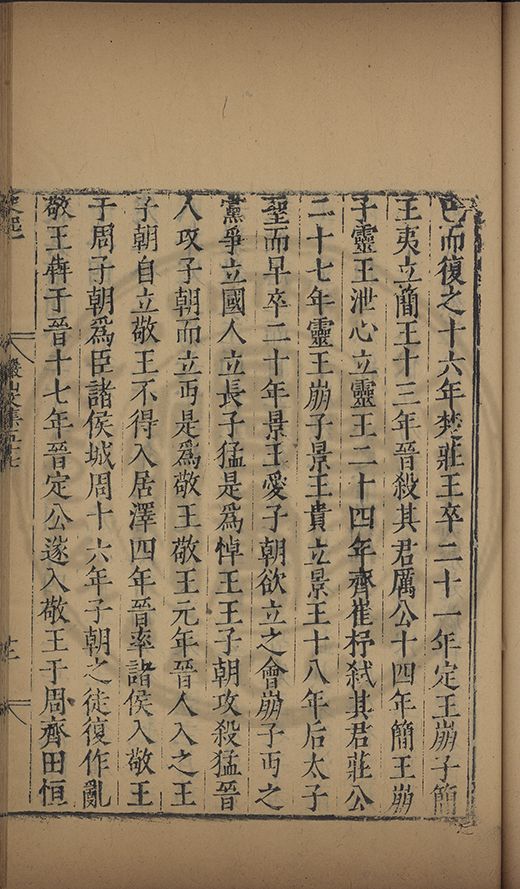 已而復之十六年楚莊王卒二十一年定王崩子簡
王夷立簡王十三年晉殺其君厲公十四年簡王崩
子靈王泄心立靈王二十四年齊崔杼弑其君莊公
二十七年靈王崩子景王貴立景王十八年后太子
聖而早卒二十年景王愛子朝欲立之會崩子丏之
黨爭立國人立長子猛是為悼王王子朝攻殺猛晉
人攻子朝而立丏是為敬王敬王元年晉人入之王
子朝自立敬王不得入居澤四年晉率諸侯入敬王
于周子朝為臣諸侯城周十六年子朝之徒復作亂
敬王犇于晉十七年晉定公遂入敬王于周齊田恒